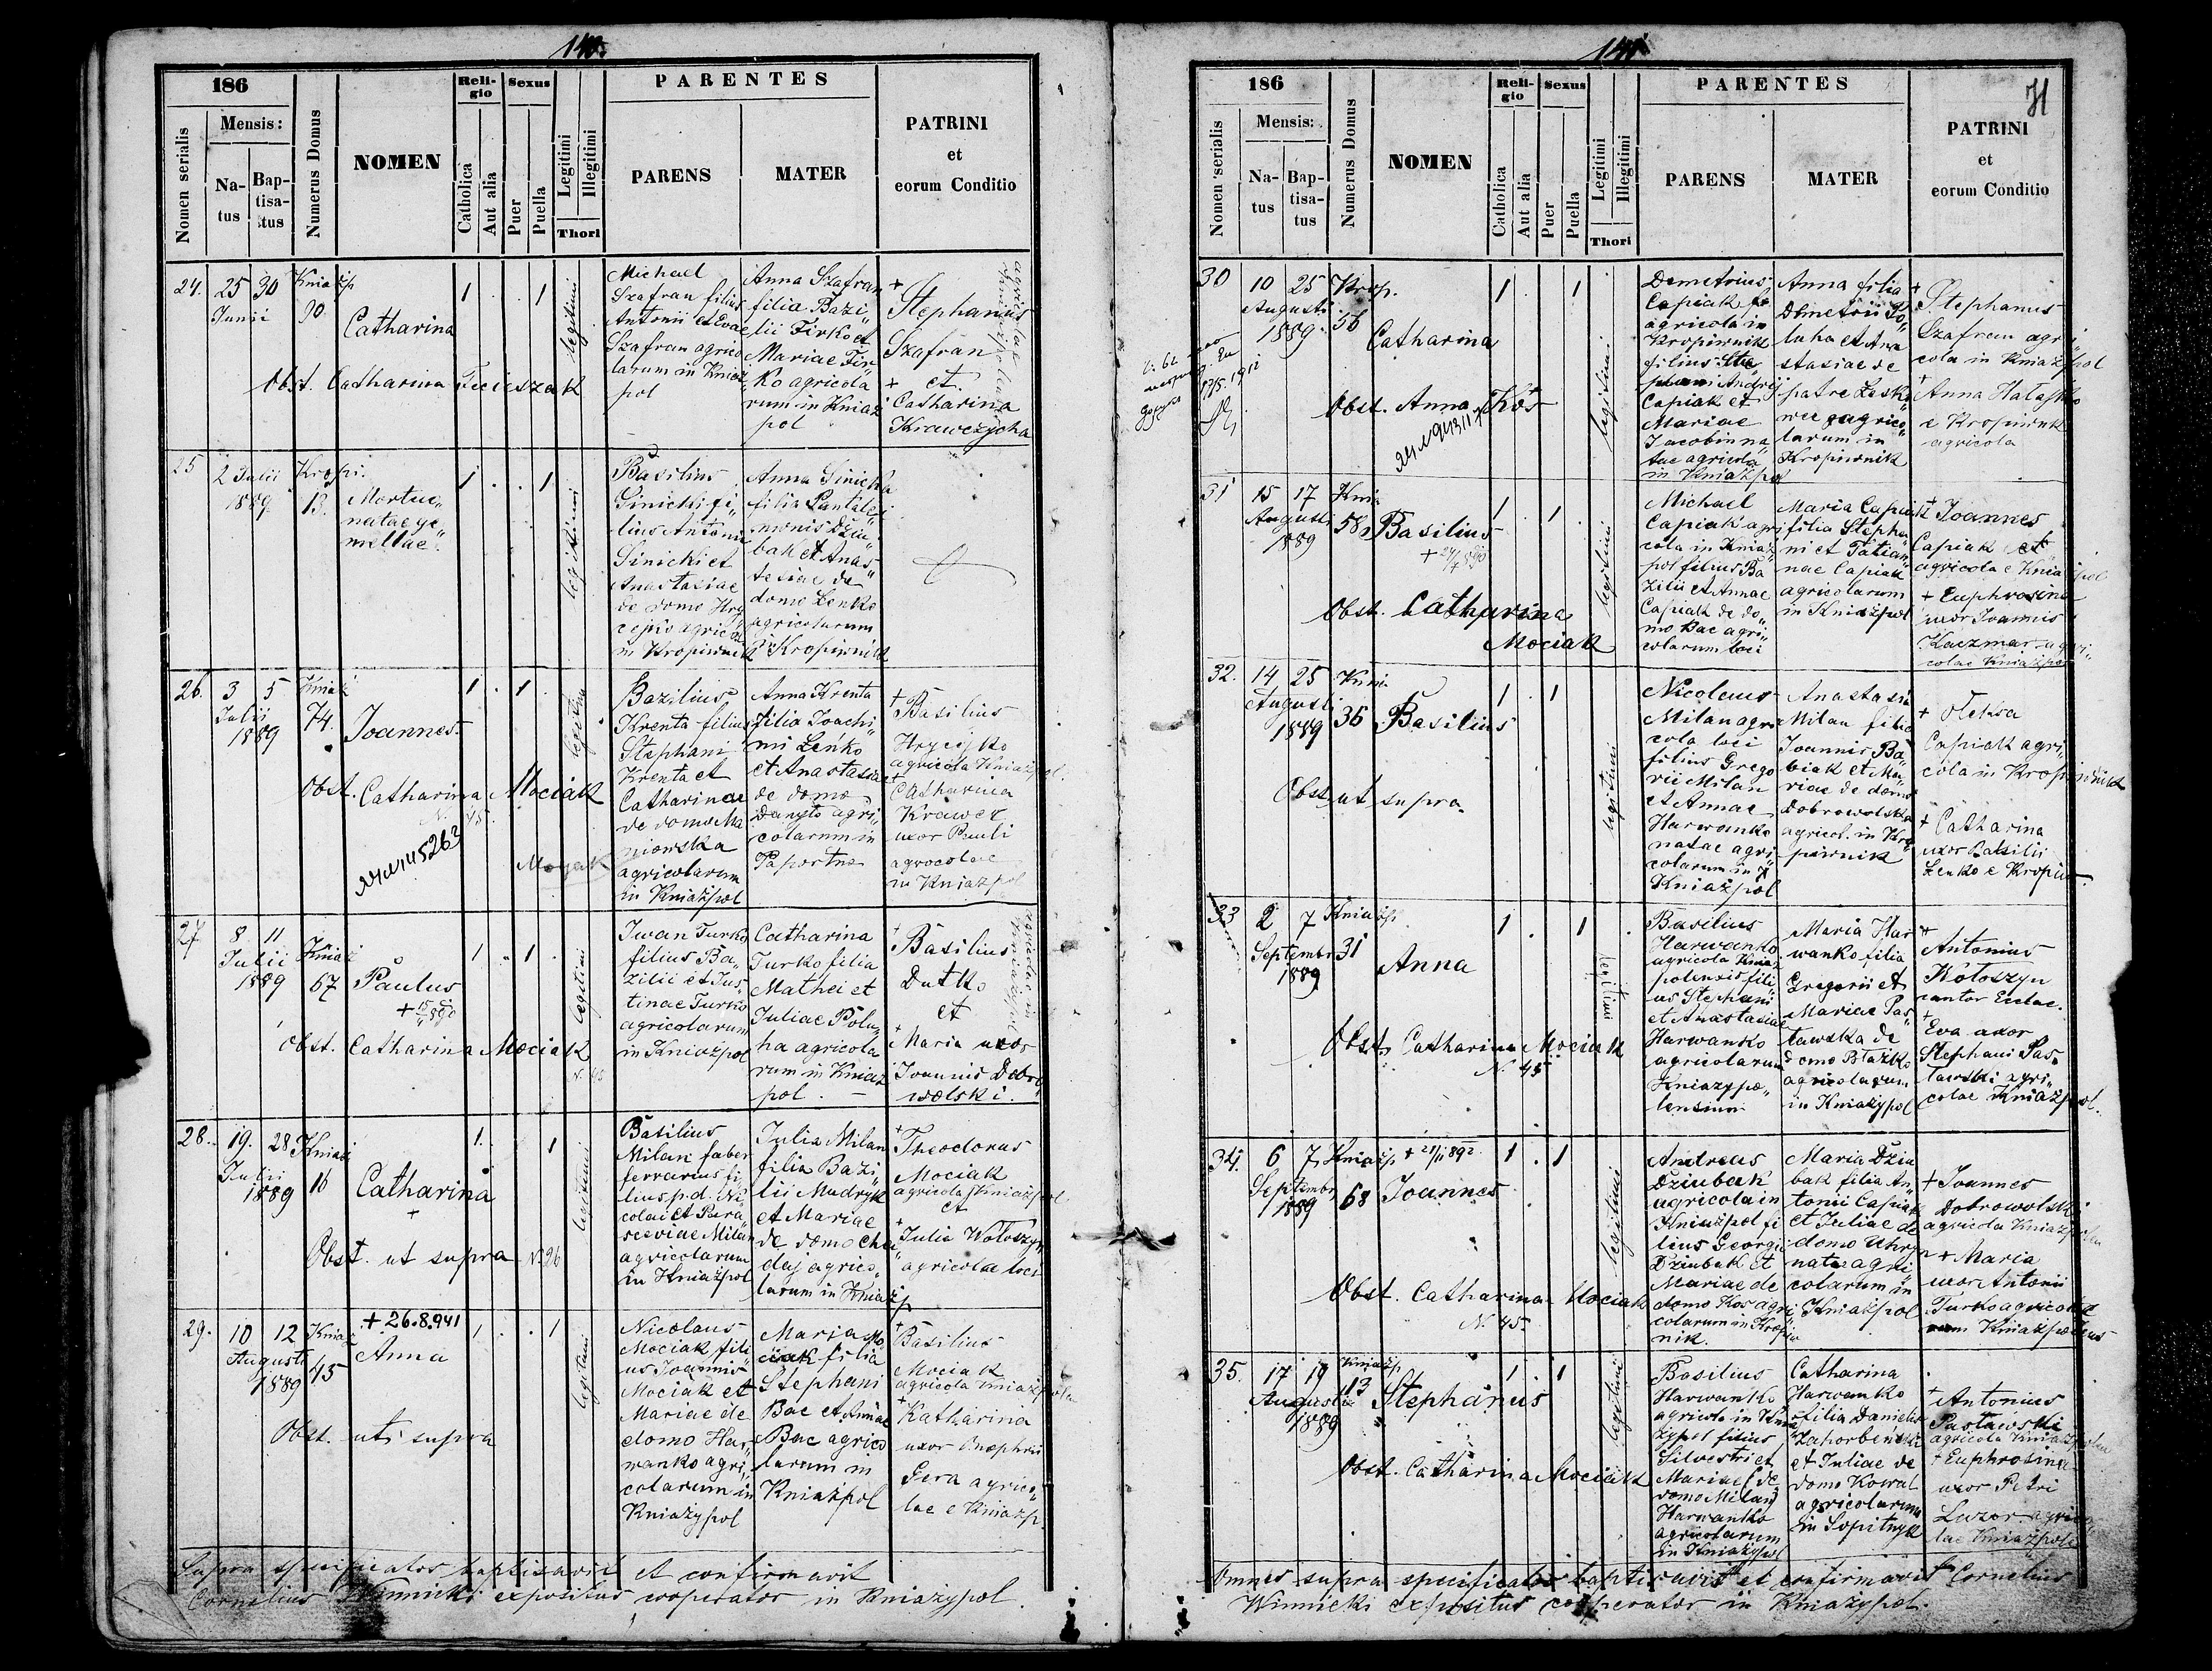 140.
186
Mensis:
Nomen serialis
Na-
tus
Bap-
tisa-
tus
Numerus Domus
NOMEN
Reli-
gio
Catholica
Aut alia
Sexus
Puer
Puella
Legitimi
Illegitimi
Thori
PARENTES
PARENS
MATER
PATRINI
et
eorum Conditio
24. 25 30 Kniażp
Junii 90.
Catharina
1 1
legitimi
Obst. Catharina
Michael
Szafran filius
Antonii et Evae
Szafran agrico
larum in Kniaż
pol
Anna Szafran
filia Bazi„
lii Firko et
Mariae Fir„
ko agricola
rum in Kniaż
pol
+
Stephanus
Szafran
+ et
Catharina
Krawczycha
25 2 Julii Kropi.
1889 13.
Mortuae
natae ge„
mellae.
1 1
legitimi
Basilius
Sinicki fi„
lius Antonii
Sinicki et
Anastasiae
de domo Hry
cejko agricol
in Kropiwnik
Anna Sinicka
filia Pantale„
monis Dziu„
bak et Anas„
tasiae de
domo Lenko
agricolarum
Kropiwnik
26. 3 5 Kniaż
Julii 74.
1889
Joannes
1 1
legitimi
Obst. Catharina Mociak
N. 45.
Mociak
Bazilius
Krenta filius
Stephani
Krenta et
Catharinae
de domo Ma
niowska
agricolarum
in Kniażpol
Anna Krenta
filia Joachi„
mi Leńko
et Anastasiae
de domo
Danyło agri„
colarum in
Paportno
+
Basilius
Hrycejko
agricola Kniażpol.
+
Catharina
Krawcz
uxor Pauli
agrocolae
in Kniażpol
27 8 11 Kniaż
Julii 67
1889
Paulus
1 1
legitimi
Obst. Catharina Mociak
N. 45
Iwan Turko
filius Ba„
zilii et Jus„
tinae Turko
agricolarum
in Kniażpol
Catharina
Turko filia
Mathei et
Juliae Polu„
ha agricola
rum in Kniaż
pol. —
+
Basilius
Dutko
et
+
Maria uxor
Joannis Dobro
wolski.
28. 19. 28 Kniaż
Julii 16
1889
Catharina
+
1. 1
legitimi
Obst. ut supra N. 26
Basilius
Milan faber
ferrarius fi„
lius p.d. Ni
colai et Para
sceviae Milan
agricolarum
in Kniażpol
Julia Milan
filia Bazi„
lii Mudryk
et Mariae
de domo
agrico„
larum in Kniaż
p
+
Theodorus
Mociak
agricola Kniażpol
et
+
Julia Wołoszyn
agricolae loci
29. 10 12 Kniaż
Augusti 45
1889
+ 26.8.941
Anna
1 1
legitimi
Obst. uti supra
Nicolaus
Mociak fili
us Joannis
Mociak et
Mariae de
domo Har„
wanko agri„
colarum in
Kniażypol
Maria Mo
ciak filia
Stephani
Bac et Annae
Bac agrico
larum in
Kniażpol
+
Basilius
Mociak
agricola Kniażpol
+
Katharina
uxor Onephrii
Gera agrico„
lae e Kniażp.
Supra specificatos baptisavit et confirmavit
Cornelius Winnicki expositus cooperator in Kniażypol.
141
71
186
Mensis:
Nomen serialis
Na-
tus
Bap-
tisa-
tus
Numerus Domus
NOMEN
Reli-
gio
Catholica
Aut alia
Sexus
Puer
Puella
Legitimi
Illegitimi
Thori
PARENTES
PARENS
MATER
PATRINI
et
eorum Conditio
30 10 25 Krop.
Augusti 56
1889
Catharina
17/5. 1912
1 1
legitimi
Obst. Anna Kos
Demetrius
Capiak
agricola in
Kropiwnik
filius
Andrij
Capiak et
Mariae
Jacobin na
tae agricola
in Kniażpol
Anna filia
Dimetrii Po„
luha et Ana
stasiae de
patre Lesko
agrico„
larum in
Kropiwnik
+
Stephanus
Szafran agri„
cola in Kniażpol
+
Anna
e Kropiwnik
agricola
31 15 17 Knia
Augusti 58
1889
Basilius
1 1
legitimi
Obst. Catharina
Mociak
Michael
Capiak agri
cola in Kniaż
pol filius Ba
zilii et Annae
Capiak de do„
mo Bac agri„
colarum loci
Maria Capiak
filia Stepha„
ni et Tatian„
nae Capiak
agricolarum
in Kniażpol
+ Joannes
Capiak et
agricola e Kniażpol
+ Euphrosina
uxor Joannis
Kaczmar agri„
colae Kniażpol
32. 14 25 Knia
Augusti 36
1889
Basilius
1 1
legitimi
Obst. ut supra
Nicolaus
Milan agri
cola loci
filius Grego
rii Milan
et Annae
Harwanko
natae agri„
colarum in
Kniażpol
Anastasia
Milan filia
Joannis Ba„
biak et Ma„
riae de domo
Dobrowolska
agricol. in Kro„
piwnik
+ Oleksa
Capiak agri„
cola in Kropiwnik
+ Catharina
uxor Basilii
Lenko e Kropiw.
33 2 7 Kniażp.
Septembr 31
1889
Anna
1 1
legitimi
Obst. Catharina Mociak
N. 45
Basilius
Harwanko
agricola Kniaż
polensis fili„
us Stephani
et Anastasiae
Harwanko
agricolarum
Kniażypo„
lensium
Maria Har
wanko filia
Gregorii et
Mariae Pas„
tawska de
domo
agricolarum
in Kniażypol
+
Antonius
Wołoszyn
cantor Eccl.
+
Eva uxor
Stephani Pas„
tawski agri„
colae Kniażpol.
34. 6 7 Kniażp + 21/11 892.
Septembr 68
1889
Joannes
1 1
legitimi
Obst. Catharina Mociak
N. 45
Andreas
Dziubak
agricola in
Kniażpol fi
lius Georgii
Dziubak et
Mariae de
domo Kos agri
colarum in Kropiw
nik.
Maria Dziu
bak filia An„
tonii Capiak
et Juliae de
domo Uhryn
natae agri„
colarum in
Kniażpol
+ Joannes
Dobrowolski
agricola Kniażpol
+ Maria
uxor Antonii
Turko agricola
Kniażpol
35. 17 19 Kniażp
Augusti 13
1889
Stephanus
1 1
legitimi
Obst. Catharina Mociak
Basilius
Harwanko
agricola in Knia
żypol filius
Silvestri et
Mariae (de
domo Milan)
Harwanko
agricolarum
in Kniażypol
Catharina
Harwanko
filia Danielis
et Juliae de
domo Kowal
agricolarum
in Sopitnyk
+
Antonius
Pastawski
agricola Kniażpol
+ Euphrosina
uxor Petri
Luzor agrico„
lae Kniażpol
Omnes supra specificatos baptisavit et confirmavit Cornelius
Winnicki expositus cooperator in Kniażypol.